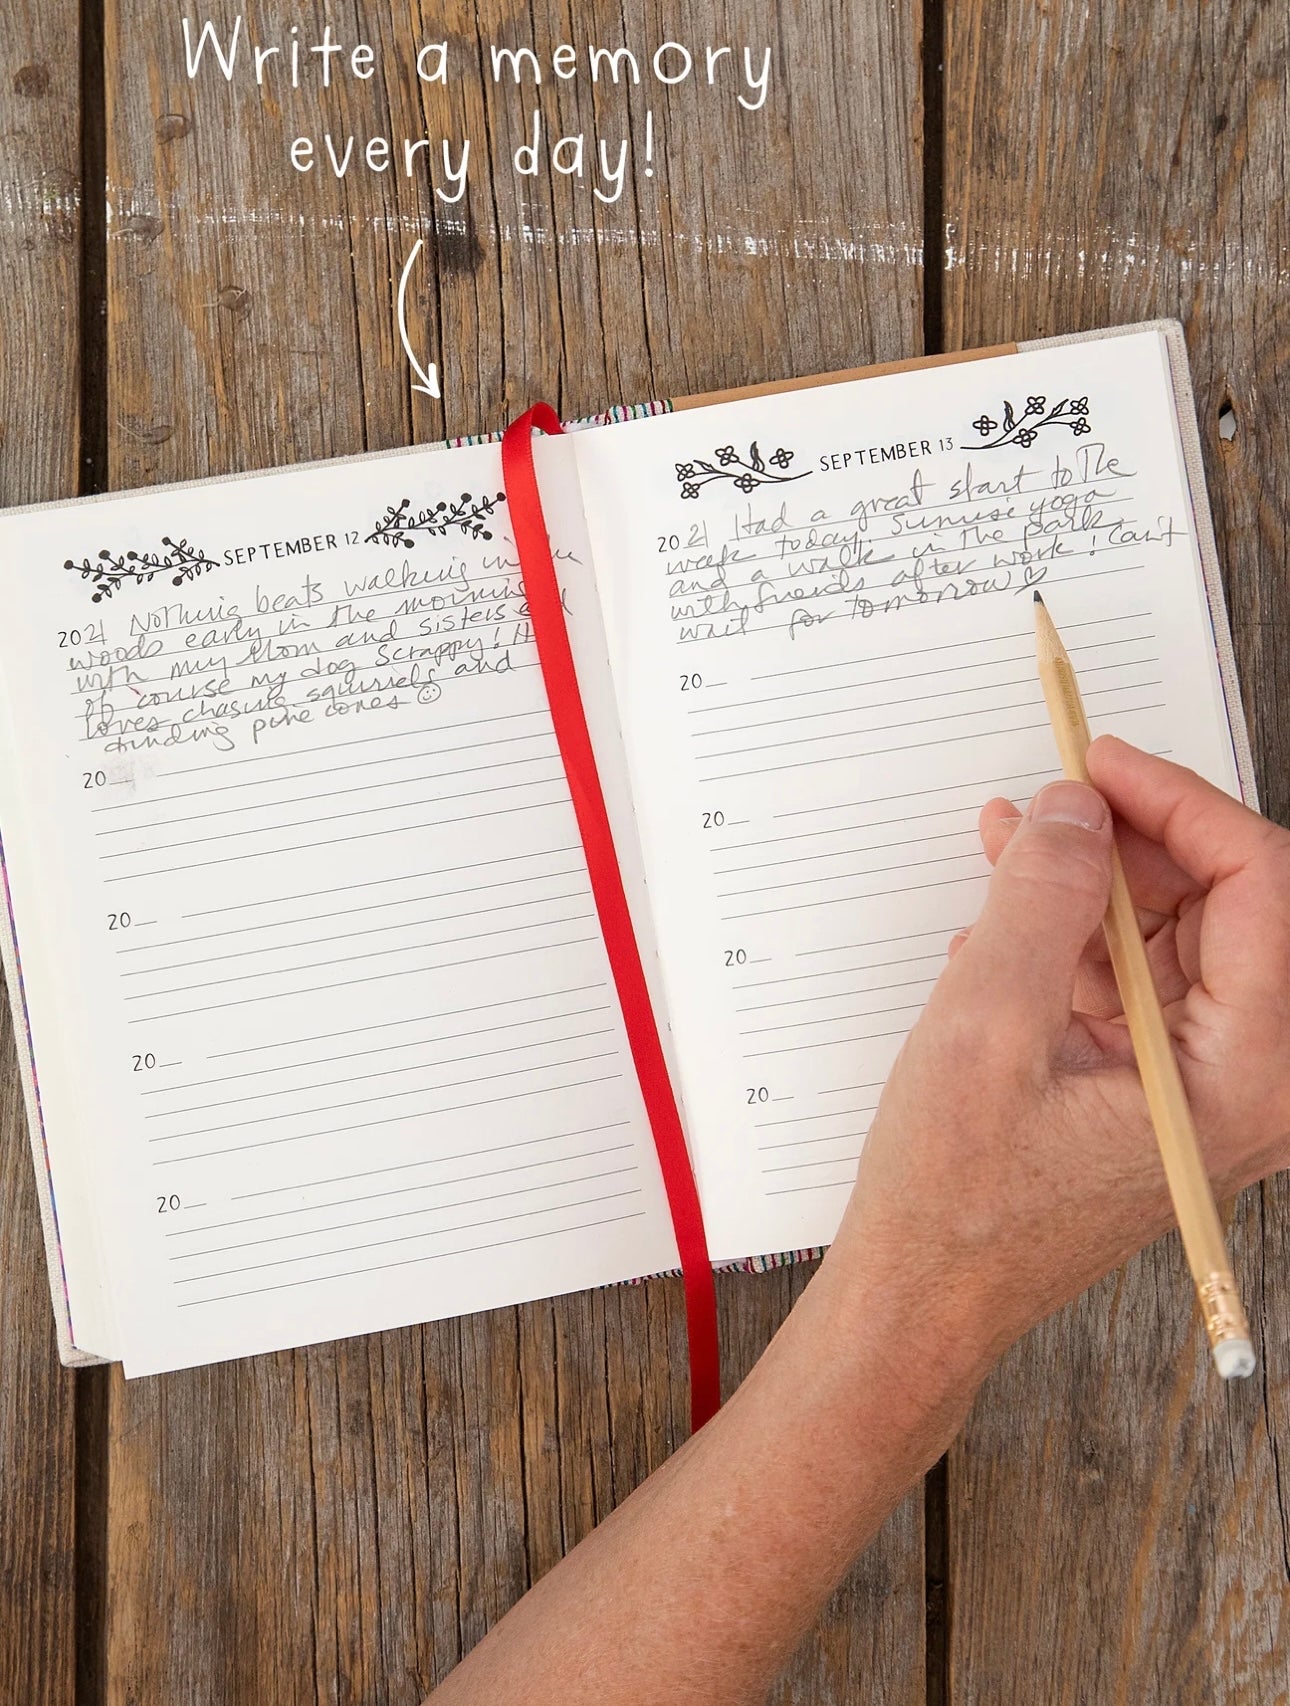 Write a memory
every day!
SEPTEMBER 12
2021 Nothing beats walking in the
woods early in the morning
with my Mom and Sisters
of course my dog Scrappy! He
loves chasing squirrels and
finding pine cones ☺
20__
20__
20__
20__
SEPTEMBER 13
2021 Had a great start to The
week today. Sunrise yoga
and a walk in the park
with friends after work! Can't
wait for tomorrow ♡
20__
20__
20__
20__